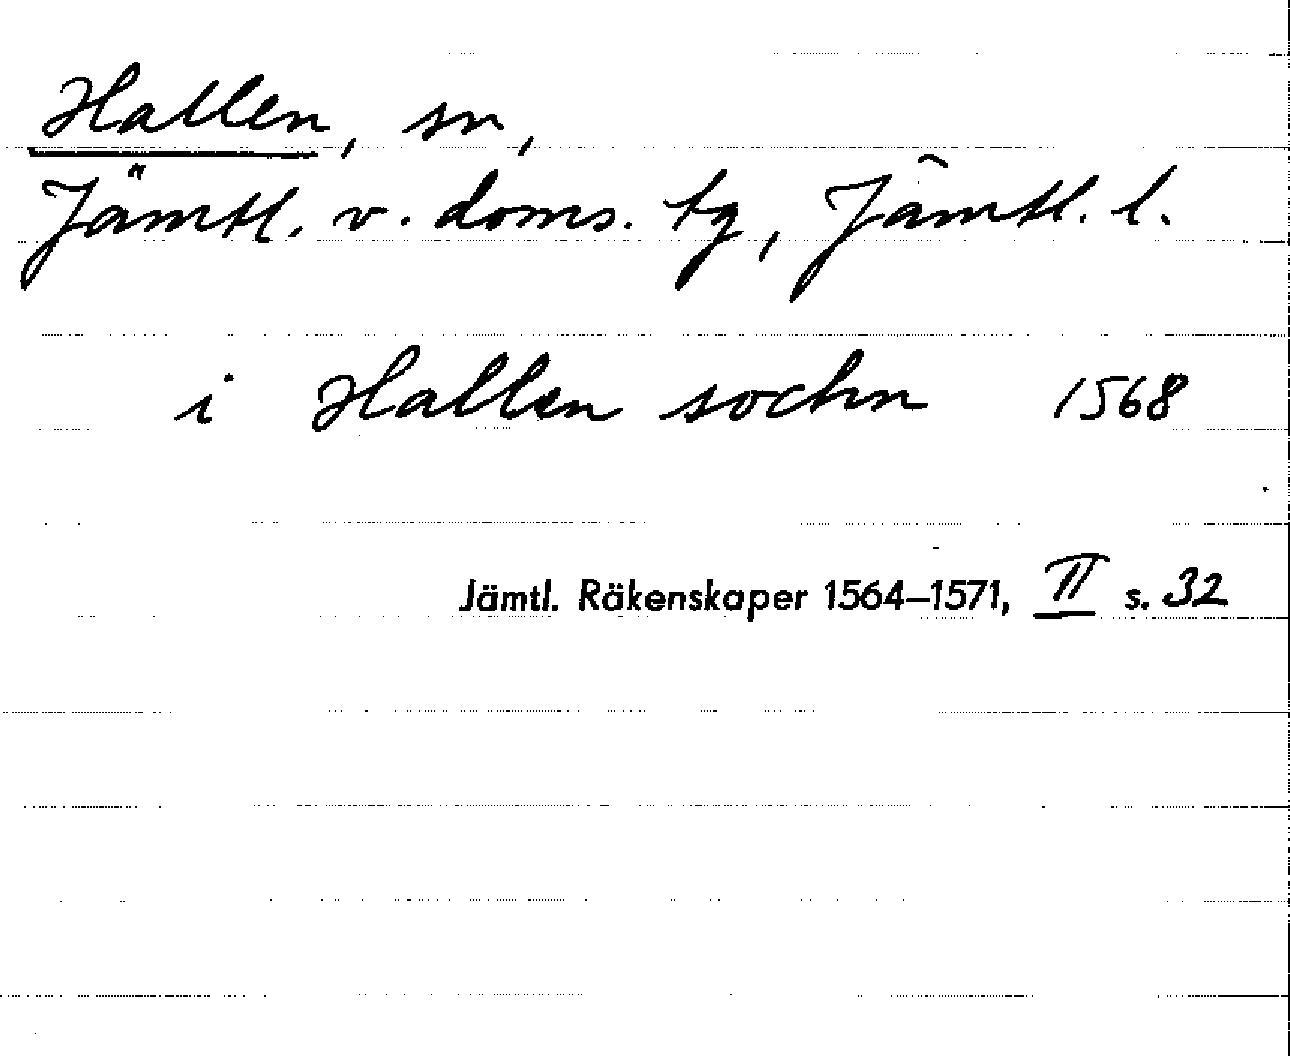 Hallen, sn,
Jämtl. v. doms. tg, Jämtl. l.
i Hallen sochn 1568
Jämtl. Räkenskaper 1564–1571, II s. 32